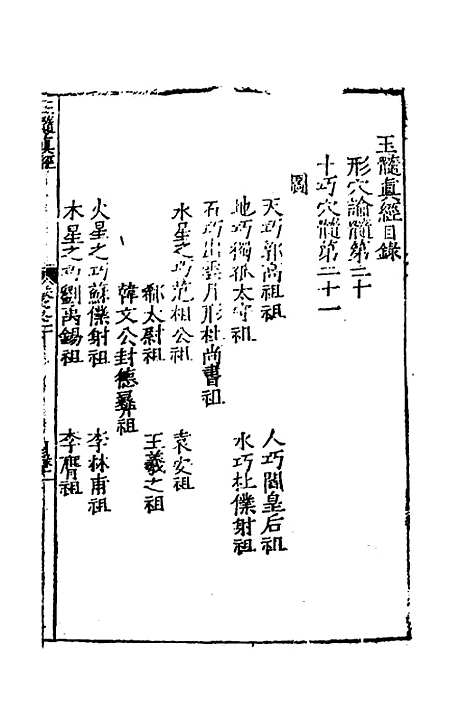 玉髓真經目錄
形穴論髓第二十
十巧穴髓第二十一
圖
天巧郭尚祖祖 人巧閻皇后祖
地巧獨孤太守祖 水巧杜僕射祖
石巧出雲月形杜尚書祖
水星之巧范相公祖 袁安祖
郗太尉祖 王羲之祖
韓文公封德彝祖
火星之巧蘇僕射祖 李林甫祖
木星之巧劉禹錫祖 李膺祖
玉髓真經